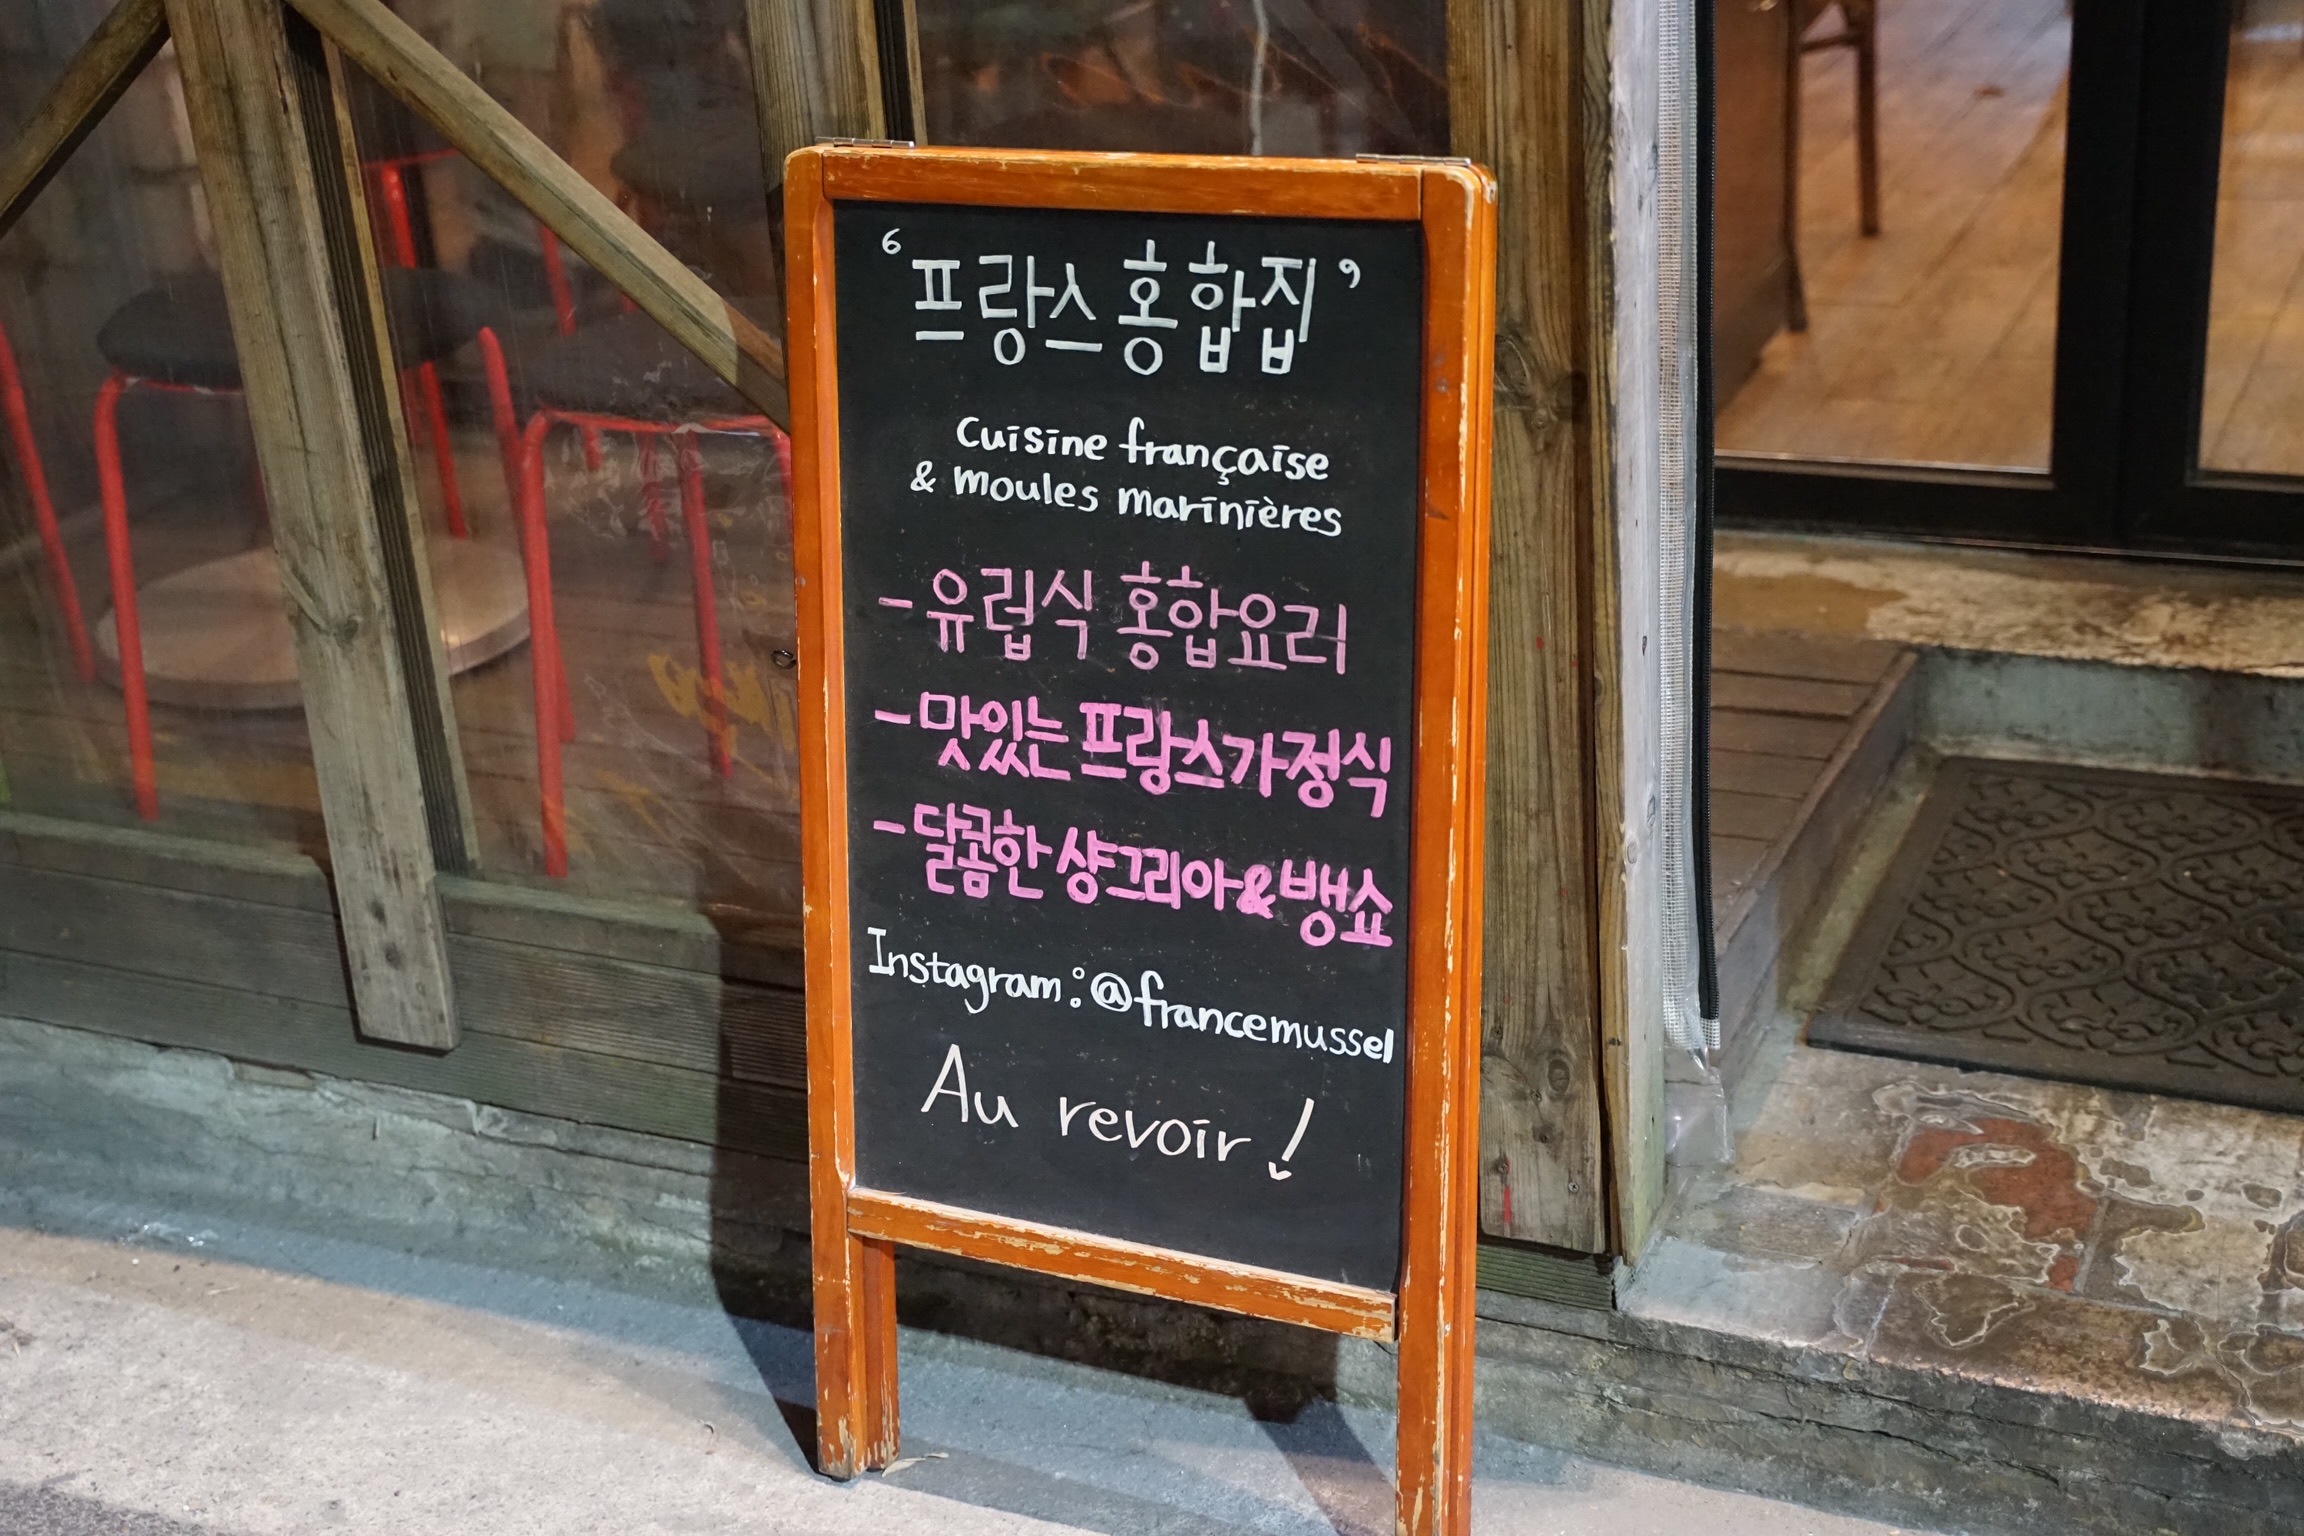 ‘프랑스홍합집’
Cuisine française
& moules marinières
-유럽식 홍합요리
-맛있는 프랑스가정식
-달콤한 샹그리아&뱅쇼
Instagram:@francemussel
Au revoir!